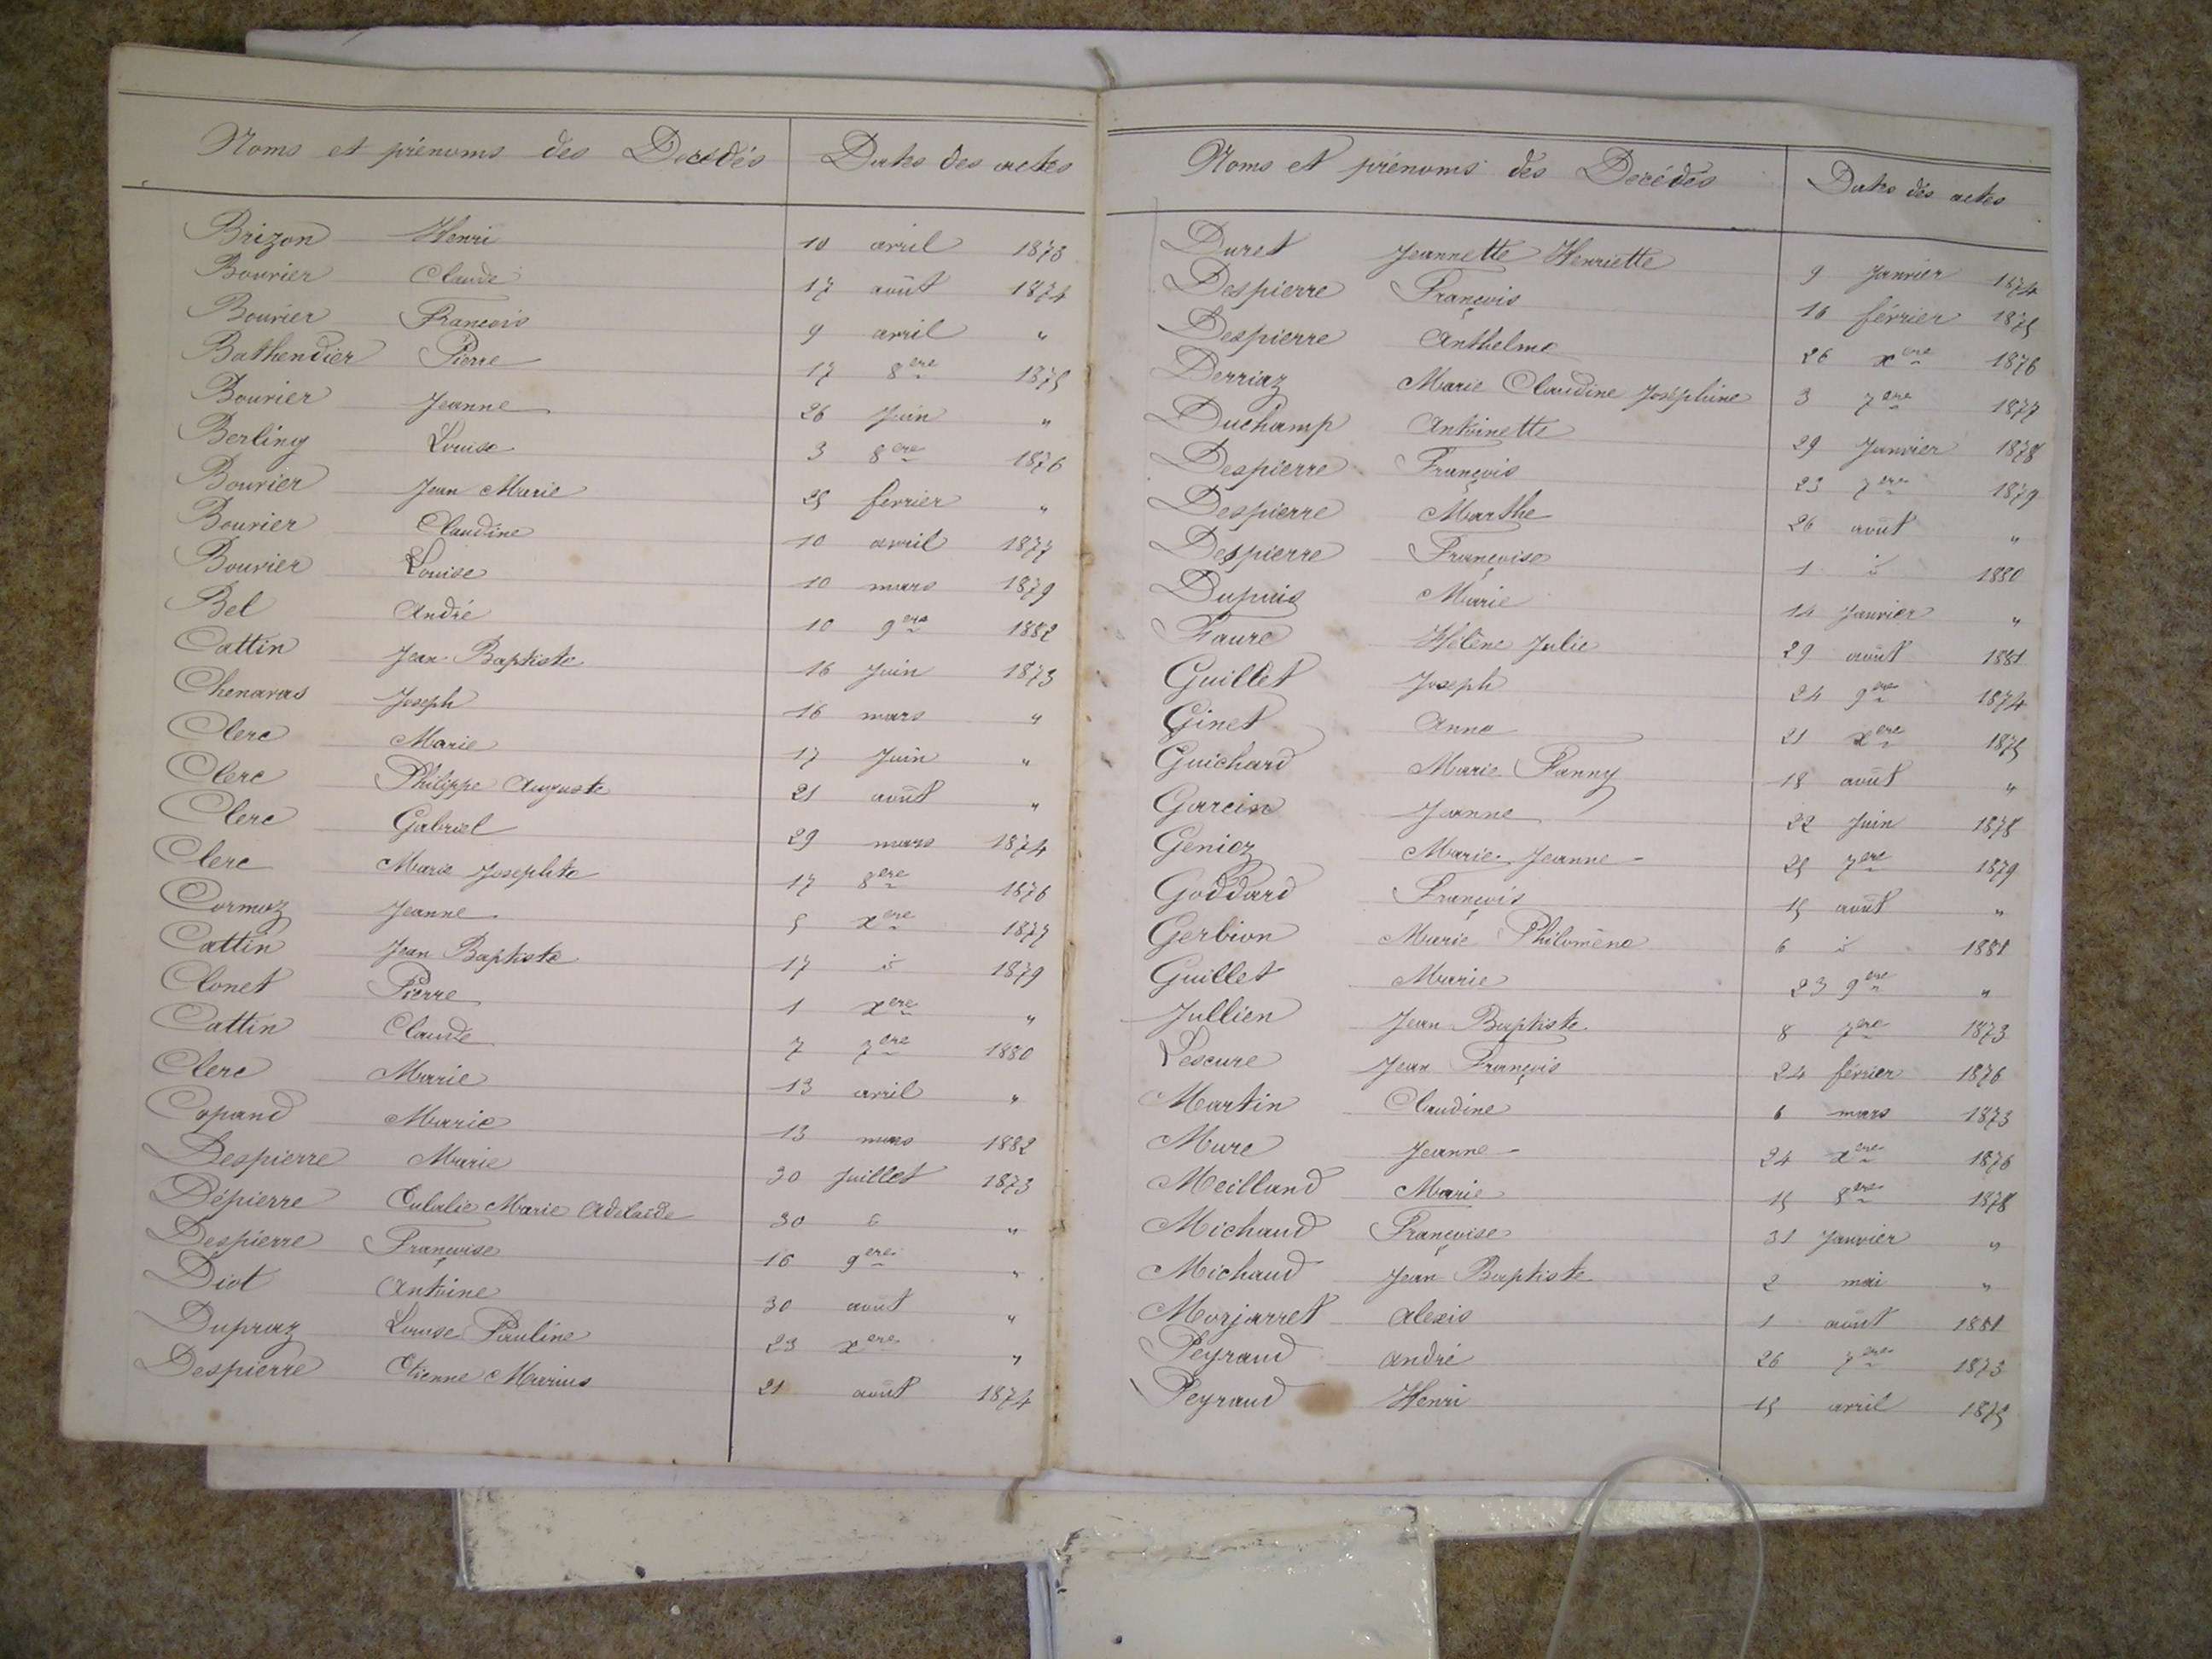 Noms et prénoms des Decédés Dates des actes
Brizon Henri 10 avril 1873
Bouvier Claude 17 août 1874
Bouvier François 9 avril "
Bathendier Pierre 17 8ere 1875
Bouvier Jeanne 26 Juin "
Berliny Louise 3 8ere 1876
Bouvier Jean Marie 25 fevrier "
Bouvier Claudine 10 avril 1877
Bouvier Louise 10 mars 1879
Bel André 10 9ere 1882
Cattin Jean Baptiste 16 Juin 1873
Chenavas Joseph 16 mars "
Clerc Marie 17 Juin "
Clerc Philippe Auguste 21 août "
Clerc Gabriel 29 mars 1874
Clerc Marie Josephte 17 8ere 1876
Cormoz Jeanne 5 xere 1877
Cattin Jean Baptiste 17 id 1879
Clonet Pierre 1 xere "
Cattin Claude 7 7ere 1880
Clerc Marie 13 avril "
Copand Marie 13 mars 1882
Despierre Marie 30 Juillet 1873
Dépierre Eulalie Marie Adelaïde 30 id "
Despierre Françoise 16 9ere "
Diot Antoine 30 août "
Dupraz Louise Pauline 23 xere "
Despierre Etienne Marius 21 août 1874
Noms et prénoms des Decédés Dates des actes
Duret Jeannette Henriette 9 Janvier 1874
Despierre François 16 février 1875
Despierre Anthelme 26 xere 1876
Derriaz Marie Claudine Joséphine 3 7ere 1877
Duchamp Antoinette 29 Janvier 1878
Despierre François 23 7ere 1879
Despierre Marthe 26 août "
Despierre Françoise 1 id 1880
Dupuis Marie 14 Janvier "
Faure Hélène Julie 29 août 1881
Guillet Joseph 24 9ere 1874
Ginet Anna 21 xere 1875
Guichard Marie Fanny 18 août "
Garcin Jeanne 22 Juin 1878
Geniez Marie Jeanne 25 7ere 1879
Goddard François 15 août "
Gerbion Marie Philomène 6 id 1881
Guillet Marie 23 9ere "
Jullien Jean Baptiste 8 7ere 1873
Lescure Jean François 24 février 1876
Martin Claudine 6 mars 1873
Mure Jeanne 24 xere 1876
Meilland Marie 15 8ere 1878
Michaud Françoise 31 Janvier "
Michaud Jean Baptiste 2 mai "
Morjarret Alexis 1 août 1881
Peyraud André 26 7ere 1873
Peyraud Henri 15 avril 1875